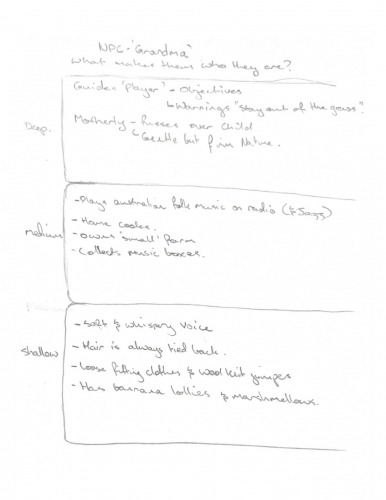 NPC - 'Grandma'
What makes them who they are?
Deep.
Guides 'Player' - Objectives
Warnings "Stay out of the grass".
Motherly - Fusses over Child
Gentle but firm Nature.
Medium
- Plays australian folk music on radio (& Jazz)
- Home cooks.
- owns 'small' farm
- Collects music boxes.
Shallow
- Soft & whispry voice
- Hair is always tied back.
- Loose fitting clothes & wool knit jumpers
- Has banana lollies & marshmellows.